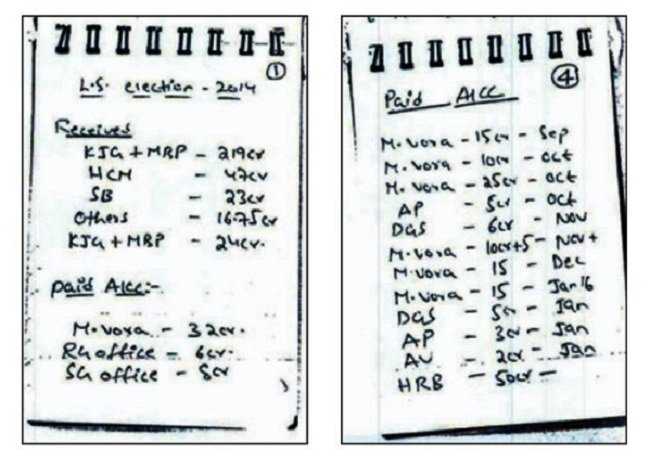 1
L.S. election - 2014
Received
KJG + MRP - 219cr
HCM - 42cr
SB - 23cr
Others - 16.75cr
KJG + MRP - 24cr.
Paid AICC:-
M. vora - 32cr.
RG office - 6cr.
SG office - 5cr
4
Paid AICC
M. vora - 15cr - Sep
M. vora - 10cr - Oct
M. vora - 25cr - Oct
AP - 5cr - Oct
DGS - 6cr - Nov
M. vora - 10cr+5 - Nov +
M. vora - 15 - Dec
M. vora - 15 - Jan 16
DGS - 5cr - Jan
AP - 3cr - Jan
AV - 2cr - Jan
HRB - 50cr -